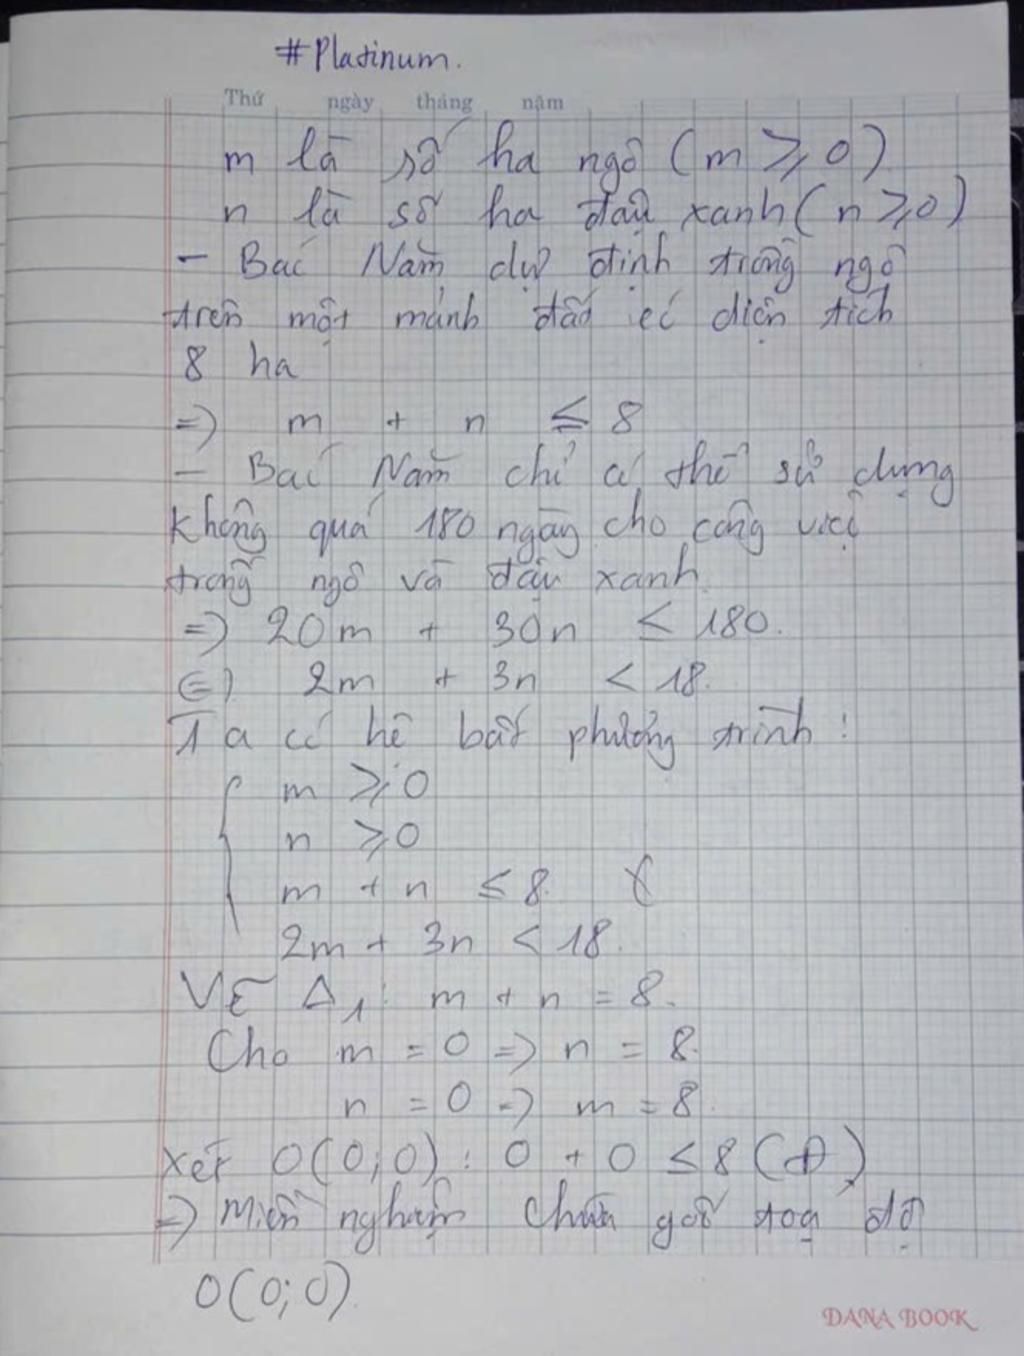 #Platinum.
Thứ ngày tháng năm
m là số ha ngô (m ⩾ 0)
n là số ha đậu xanh (n ⩾ 0)
- Bác Năm dự định trồng ngô
trên một mảnh đất có diện tích
8 ha
=> m + n ≤ 8
- Bác Năm chỉ có thể sử dụng
không quá 180 ngày cho công việc
trồng ngô và đậu xanh.
=> 20m + 30n ≤ 180.
(=) 2m + 3n < 18.
Ta có hệ bất phương trình:
{ m ⩾ 0
n ⩾ 0
m + n ≤ 8.
2m + 3n < 18.
VẼ Δ1: m + n = 8.
Cho m = 0 => n = 8.
n = 0 => m = 8.
Xét O(0;0): 0 + 0 ≤ 8 (Đ)
=> Miền nghiệm chứa gốc toạ độ
O(0;0).
DANA BOOK